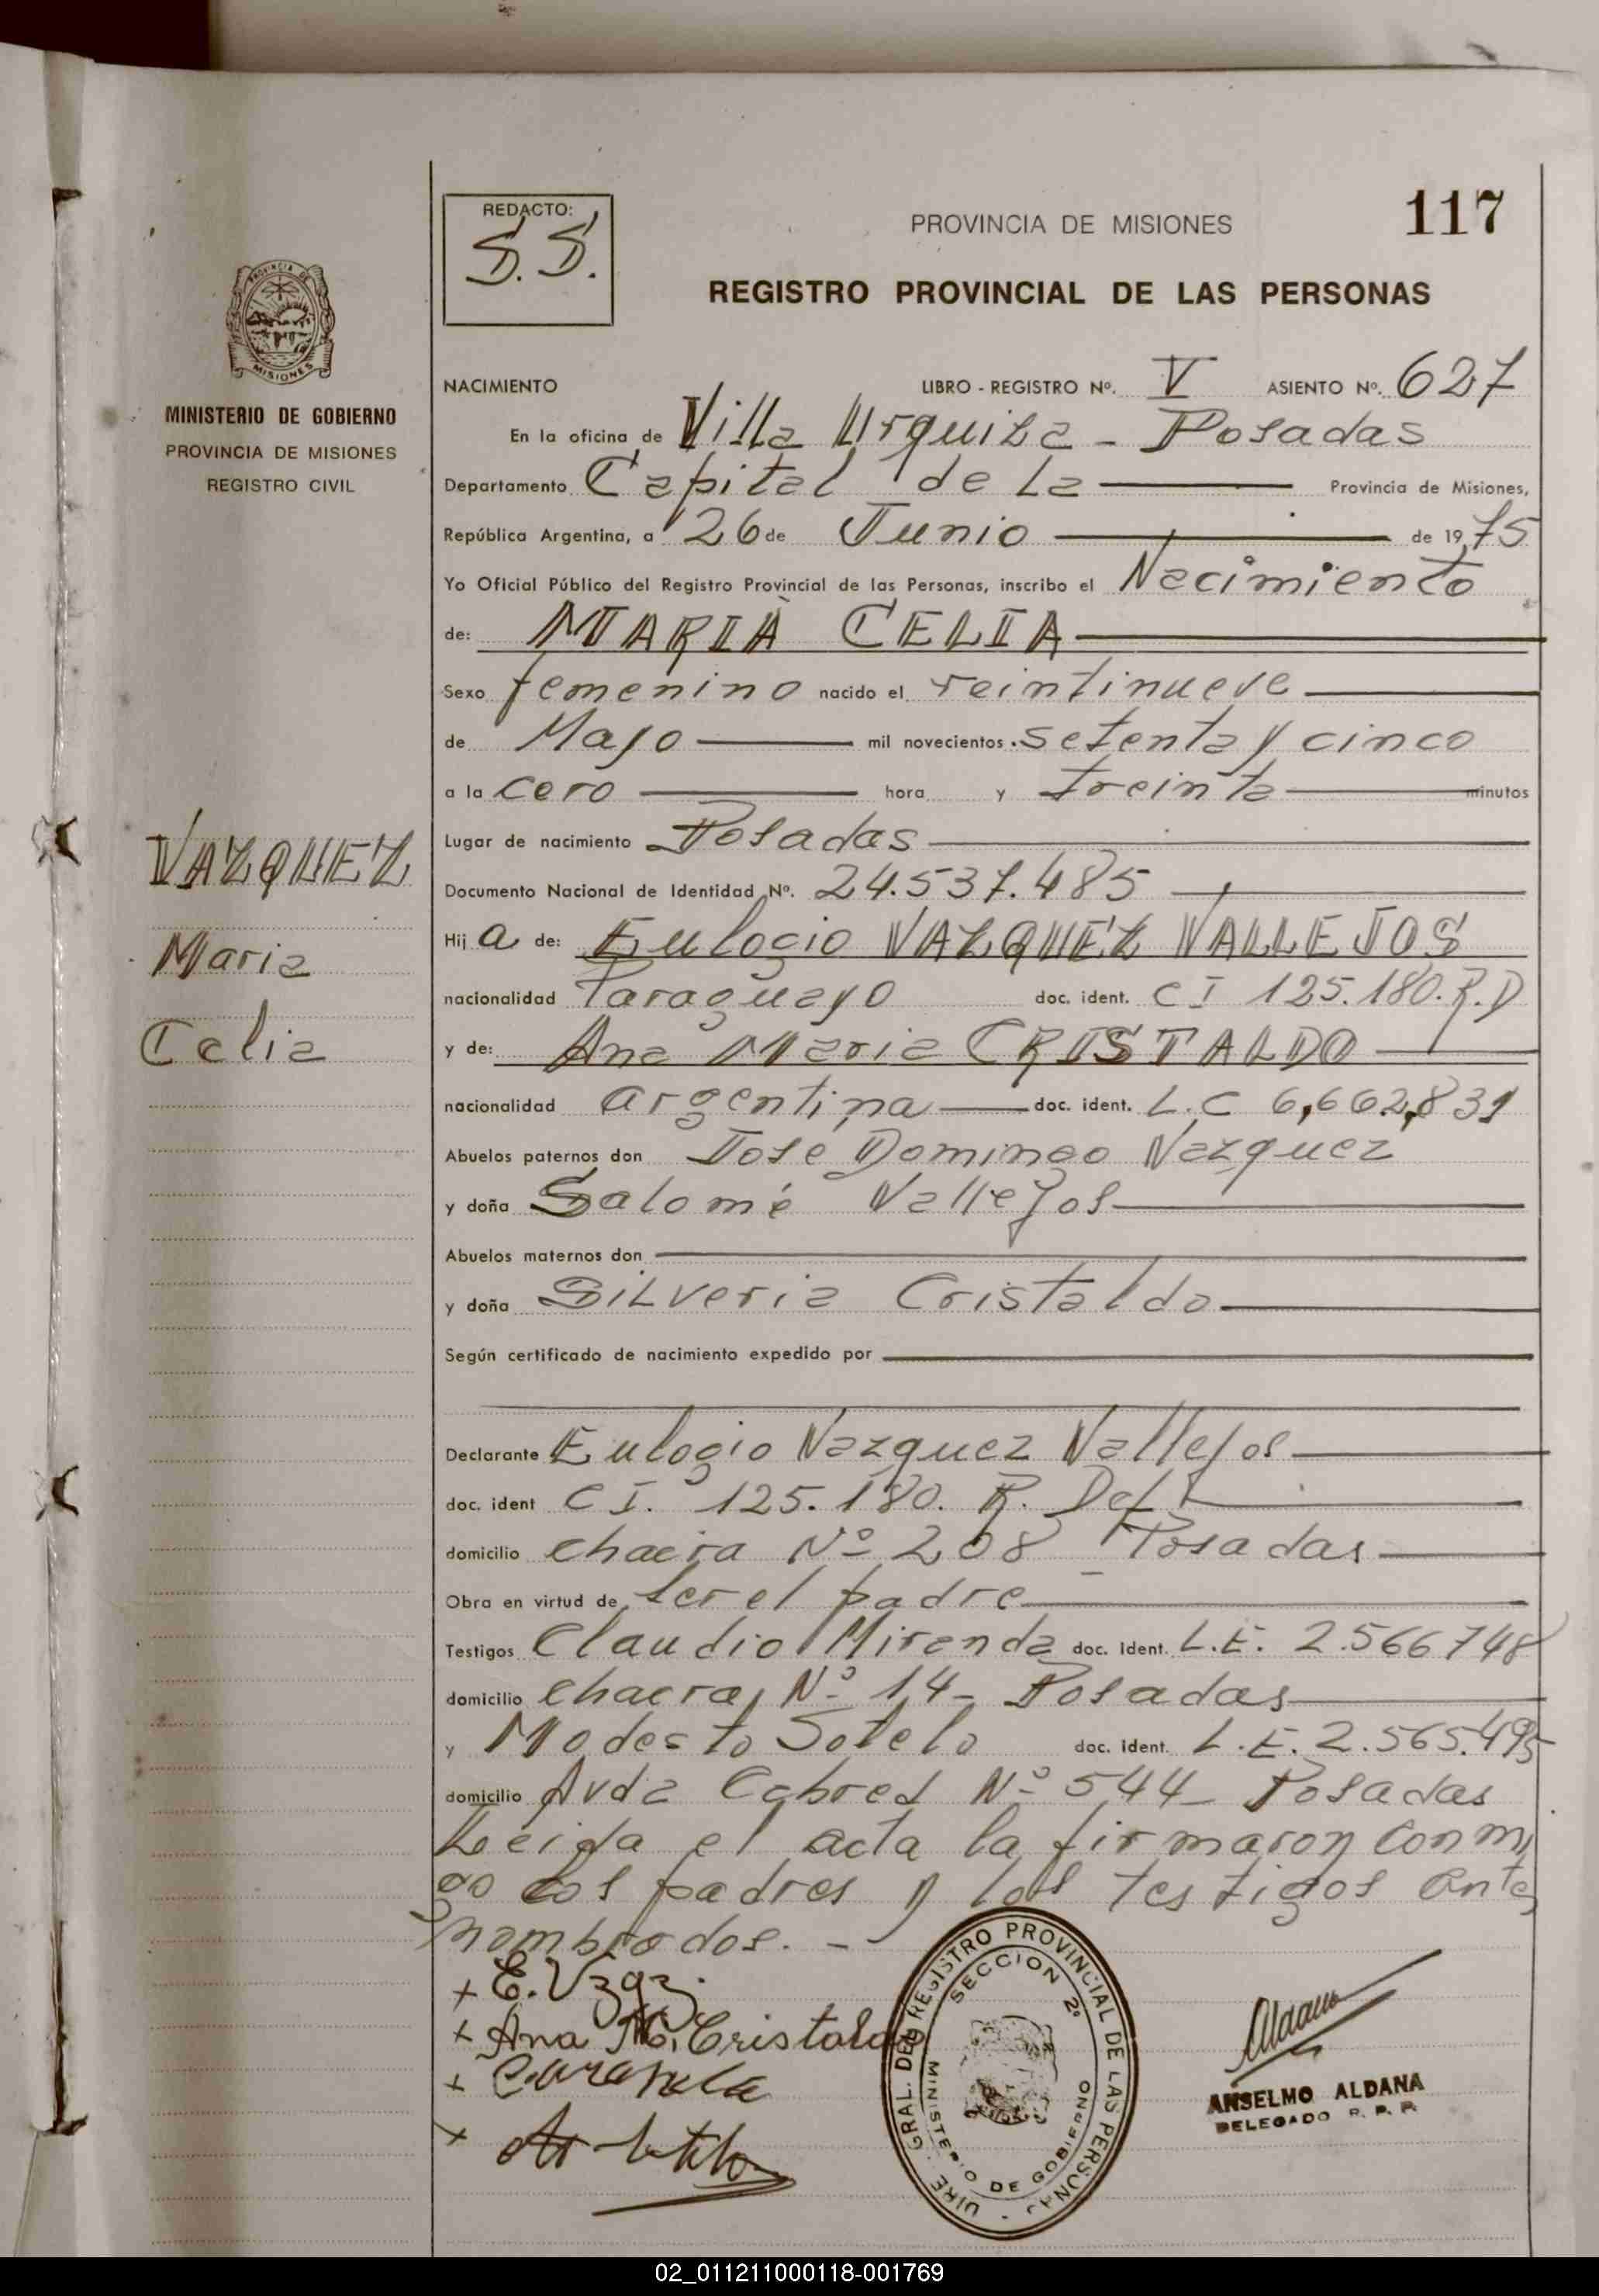 117
REDACTO:
S.S.
PROVINCIA DE MISIONES
REGISTRO PROVINCIAL DE LAS PERSONAS
PROVINCIA DE
MISIONES
MINISTERIO DE GOBIERNO
PROVINCIA DE MISIONES
REGISTRO CIVIL
NACIMIENTO LIBRO - REGISTRO Nº. V ASIENTO Nº. 627
En la oficina de Villa Urquiza - Posadas
Departamento Capital de La Provincia de Misiones,
República Argentina, a 26 de Junio de 1975
Yo Oficial Público del Registro Provincial de las Personas, inscribo el Nacimiento
de: MARIA CELIA
Sexo femenino nacido el veintinueve
de Mayo mil novecientos setenta y cinco
a la cero hora y treinta minutos
Lugar de nacimiento Posadas
Documento Nacional de Identidad Nº. 24.537.485
Hija de: Eulogio VAZQUEZ VALLEJOS
nacionalidad Paraguayo doc. ident. C I 125.180.R.D
y de: Ana Maria CRISTALDO
nacionalidad argentina doc. ident. L.C 6,662,831
Abuelos paternos don Jose Domingo Vazquez
y doña Salomé Vallejos
Abuelos maternos don
y doña Silveria Cristaldo
Según certificado de nacimiento expedido por
Declarante Eulogio Vazquez Vallejos
doc. ident C I. 125.180. R. Def
domicilio chacra Nº 208 - Posadas
Obra en virtud de ser el padre
Testigos Claudio Miranda doc. ident. L.E. 2.566748
domicilio chacra Nº 14- Posadas
y Modesto Sotelo doc. ident. L.E. 2.565.495
domicilio Avda Cabred Nº 544- Posadas
Leida el acta la firmaron conmi
go los padres y los testigos ante
nombrados. -
VAZQUEZ
Maria
Celia
+ E. Vzqz.
+ Ana M. Cristaldo
+
+
GRAL. DEL REGISTRO PROVINCIAL DE LAS PERSONAS
SECCION 2º
MINISTERIO DE GOBIERNO
ANSELMO ALDANA
DELEGADO R. P. P.
02_011211000118-001769